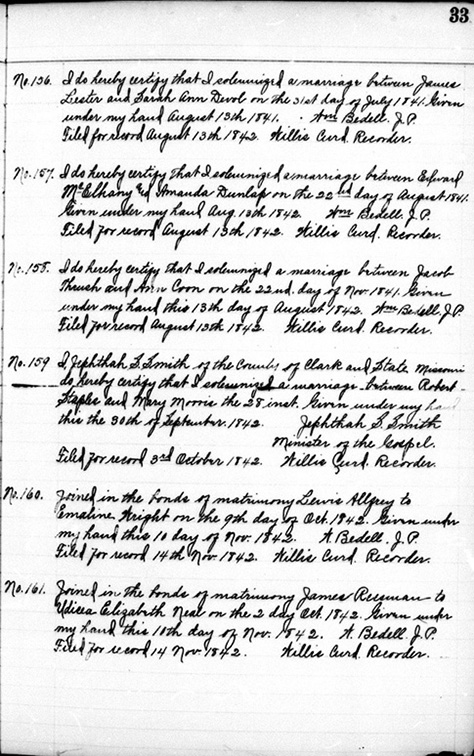 33
No. 136. I do hereby certify that I solemnized a marriage between James
Lester and Sarah Ann Devol on the 31st day of July 1841. Given
under my hand August 13th 1841. Wm Bedell. J.P.
Filed for record August 13th 1842. Willis Curd. Recorder.
No. 157. I do hereby certify that I solemnized a marriage between Edward
McElhany and Amanda Dunlap on the 22nd day of August 1841.
Given under my hand Aug. 13th 1842. Wm Bedell. J.P.
Filed for record August 13th 1842. Willis Curd. Recorder.
No. 158. I do hereby certify that I solemnized a marriage between Jacob
Thrush and Ann Coon on the 22nd. day of Nov. 1841. Given
under my hand this 13th day of August 1842. Wm Bedell. J.P.
Filed for record August 13th 1842. Willis Curd. Recorder.
No. 159 I, Jephthah S. Smith of the County of Clark and State Missouri
do hereby certify that I solemnized a marriage between Robert
Staples and Mary Morris the 28 inst. Given under my hand
this the 30th of September. 1842. Jephthah S. Smith
Minister of the Gospel.
Filed for record 3rd October 1842. Willis Curd. Recorder.
No. 160. Joined in the bonds of matrimony Lewis Allfrey to
Emaline Wright on the 9th day of Oct. 1842. Given under
my hand this 10 day of Nov. 1842. A Bedell. J.P.
Filed for record 14th Nov. 1842. Willis Curd. Recorder.
No. 161. Joined in the bonds of matrimony James Reesman to
Elizabeth Near on the 2 day Oct. 1842. Given under
my hand this 10th day of Nov. 1842. A. Bedell. J.P.
Filed for record 14 Nov. 1842. Willis Curd. Recorder.